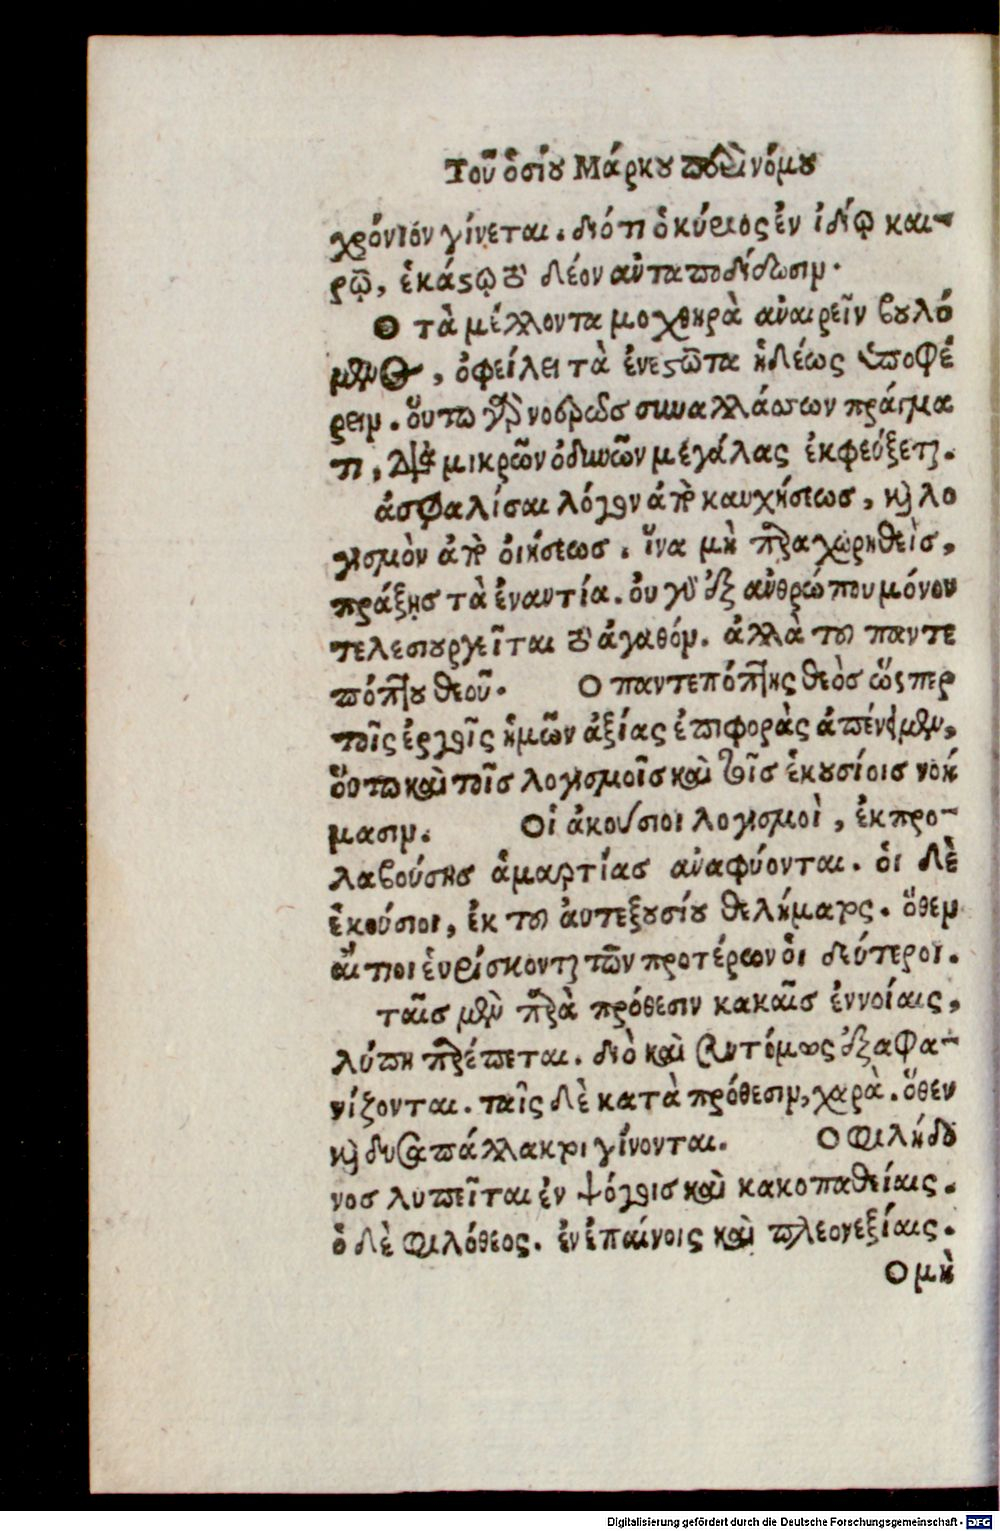 Τοῦ ὁσίου Μάρκου περὶ νόμου
χρόνιόν γίνεται. διότι ὁ κύριος ἐν ἰδίῳ και-
ρῷ, ἑκάστῳ τὸ δέον ἀνταποδίδωσιν.
Ο τὰ μέλλοντα μοχθηρὰ ἀναιρεῖν βουλό
μενος, ὀφείλει τὰ ἐνεστῶτα ἡδέως ὑποφέ
ρειν. οὕτω γὰρ νοερῶς συναλλάσσων πράγμα
τι, διὰ μικρῶν ὀδυνῶν μεγάλας ἐκφεύξεται.
ἀσφαλίσαι λόγον ἀπὸ καυχήσεως, καὶ λο
γισμὸν ἀπὸ οἰήσεως. ἵνα μὴ παραχωρηθεὶς,
πράξῃς τὰ ἐναντία. οὐ γὰρ ἐξ ἀνθρώπου μόνου
τελεσιουργεῖται τὸ ἀγαθόν. ἀλλὰ τοῦ παντε
πόπτου θεοῦ. Ο παντεπόπτης θεὸς ὥσπερ
τοῖς ἔργοις ἡμῶν ἀξίας ἐπιφορὰς ἀπένειμεν,
οὕτω καὶ τοῖς λογισμοῖς καὶ τοῖς ἑκουσίοις νοή
μασιν. Οἱ ἀκούσιοι λογισμοὶ, ἐκ προ-
λαβούσης ἁμαρτίας ἀναφύονται. οἱ δὲ
ἑκούσιοι, ἐκ τοῦ αὐτεξουσίου θελήματος. ὅθεν
αἴτιοι εὑρίσκονται τῶν προτέρων οἱ δεύτεροι.
ταῖς μὲν παρὰ πρόθεσιν κακαῖς ἐννοίαις,
λύπη παρέπεται. διὸ καὶ συντόμως ἐξαφα-
νίζονται. ταῖς δὲ κατὰ πρόθεσιν, χαρὰ. ὅθεν
καὶ δυσαπάλλακτοι γίνονται. Ο φιλήδο
νος λυπεῖται ἐν ψόγοις καὶ κακοπαθείαις.
ὁ δὲ φιλόθεος. ἐν ἐπαίνοις καὶ πλεονεξίαις.
Ο μὴ
Digitalisierung gefördert durch die Deutsche Forschungsgemeinschaft - DFG